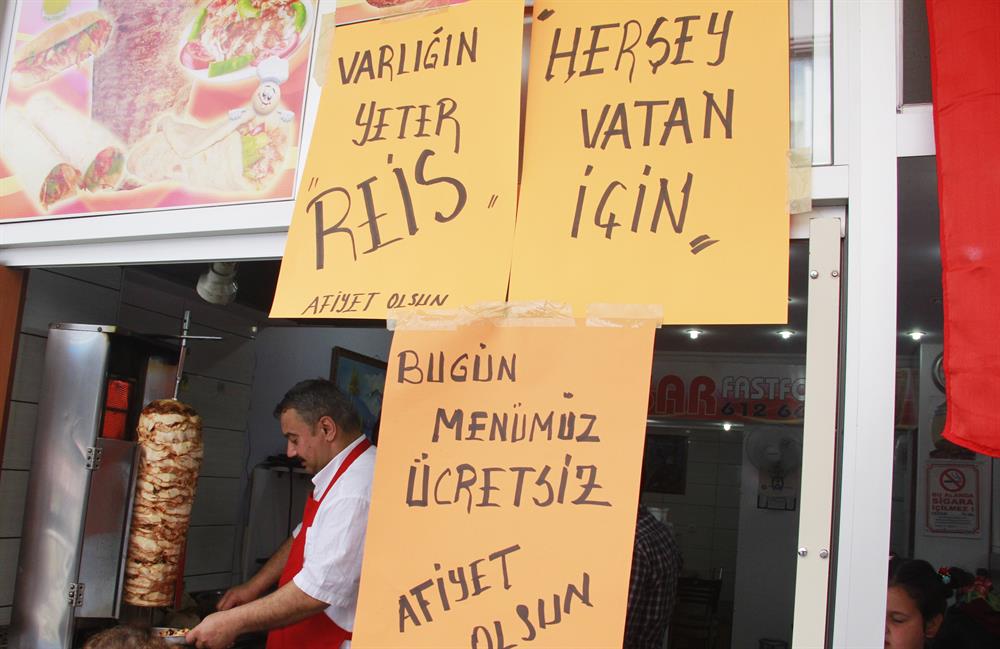 VARLIĞIN
YETER
"REİS"
AFİYET OLSUN
"HERŞEY
VATAN
İÇİN"
BUGÜN
MENÜMÜZ
ÜCRETSİZ
AFİYET
OLSUN
FASTFO
612 6
BU ALANDA
SİGARA
İÇİLMEZ !